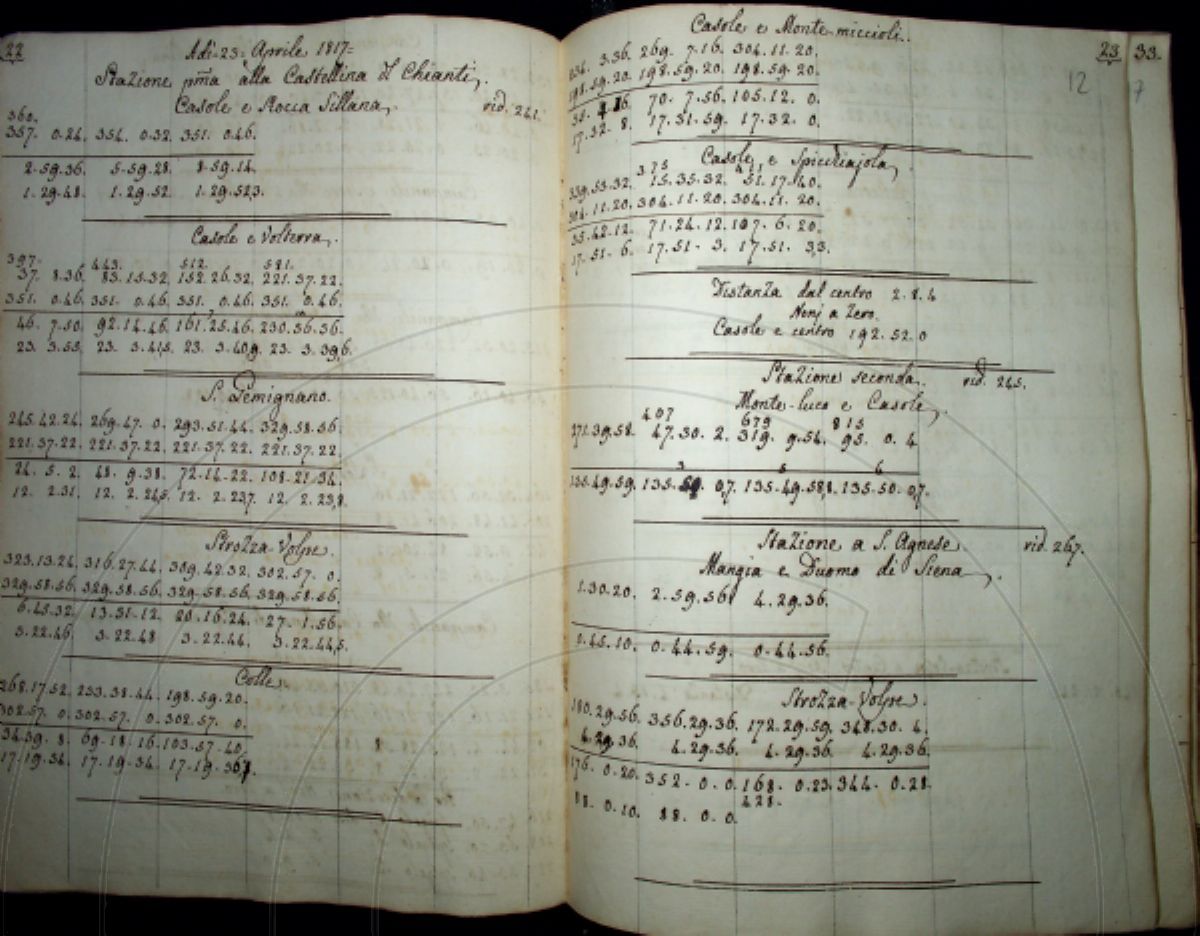 22
Adì 23 Aprile 1817=
Stazione pma alla Castellina d Chianti,
Casole e Rocca Sillana, vid. 241.
360.
357. 0.24. 354. 0.32. 351. 0.46.
2.59.36. 5.59.28. 8.59.14.
1.29.48. 1.29.52. 1.29.52,3.
Casole e Volterra,
397. 443. 512. 581.
37. 8.36. 83.15.32. 152.26.32. 221.37.22.
351. 0.46. 351. 0.46. 351. 0.46. 351. 0.46.
46. 7.50. 92.14.46. 161.25.46. 230.36.36.
23. 3.55. 23. 3.41,5. 23. 3.40,9. 23. 3.39,6.
S. Gemignano.
245.42.24. 269.47. 0. 293.51.44. 329.58.56.
221.37.22. 221.37.22. 221.37.22. 221.37.22.
24. 5. 2. 48. 9.38. 72.14.22. 108.21.34.
12. 2.31. 12. 2.24,5. 12. 2.23,7. 12. 2.23,8.
Strozza-Volpe.
323.13.24. 316.27.44. 309.42.32. 302.57. 0.
329.58.56. 329.58.56. 329.58.56. 329.58.56.
6.45.32. 13.31.12. 20.16.24. 27. 1.56.
3.22.46. 3.22.48 3.22.44. 3.22.44,5.
Colle
268.17.52. 233.38.44. 198.59.20.
302.57. 0. 302.57. 0. 302.57. 0.
34.39. 8. 69.18.16. 103.57.40.
17.19.34. 17.19.34. 17.19.36,7.
Casole e Monte-miccioli.
23 33.
12 7
234. 3.36. 269. 7.16. 304.11.20.
198.59.20. 198.59.20. 198.59.20.
35. 4.16. 70. 7.56. 105.12. 0.
17.32. 8. 17.31.59. 17.32. 0.
Casole, e Spicchiajola,
375 411
339.53.32. 15.35.32. 51.17.40.
304.11.20. 304.11.20. 304.11.20.
35.42.12. 71.24.12. 107. 6.20.
17.51. 6. 17.51. 3. 17.51. 3,3.
Distanza dal centro 2.8.4
Nonj a Zero.
Casole e centro 192.52.0
Stazione seconda. vid. 245.
Monte-luco e Casole,
407 679 815
271.39.58. 47.30. 2. 319. 9.54. 95. 0. 4
3 5 6
135.49.59. 135.50. 0,7. 135.49.58,8. 135.50. 0,7.
Stazione a S. Agnese. vid. 267.
Mangia e Duomo di Siena,
1.30.20. 2.59.56. 4.29.36.
0.45.10. 0.44.59. 0.44.56.
Strozza-Volpe.
180.29.56. 356.29.36. 172.29.59. 348.30. 4.
4.29.36. 4.29.36. 4.29.36. 4.29.36.
176. 0.20. 352. 0. 0. 168. 0.23. 344. 0.28.
428.
88. 0.10. 88. 0. 0.